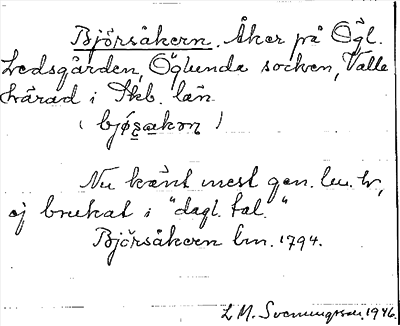 Björsåkern. Åker på Ögl.
Ledsgården, Öglunda socken, Valle
härad i Skb. län.
Nu känt mest gen. lm. kr,
ej brukat i "dagl. tal."
Björsåkern lm. 1794.
L. M. Svenungsson, 1946.